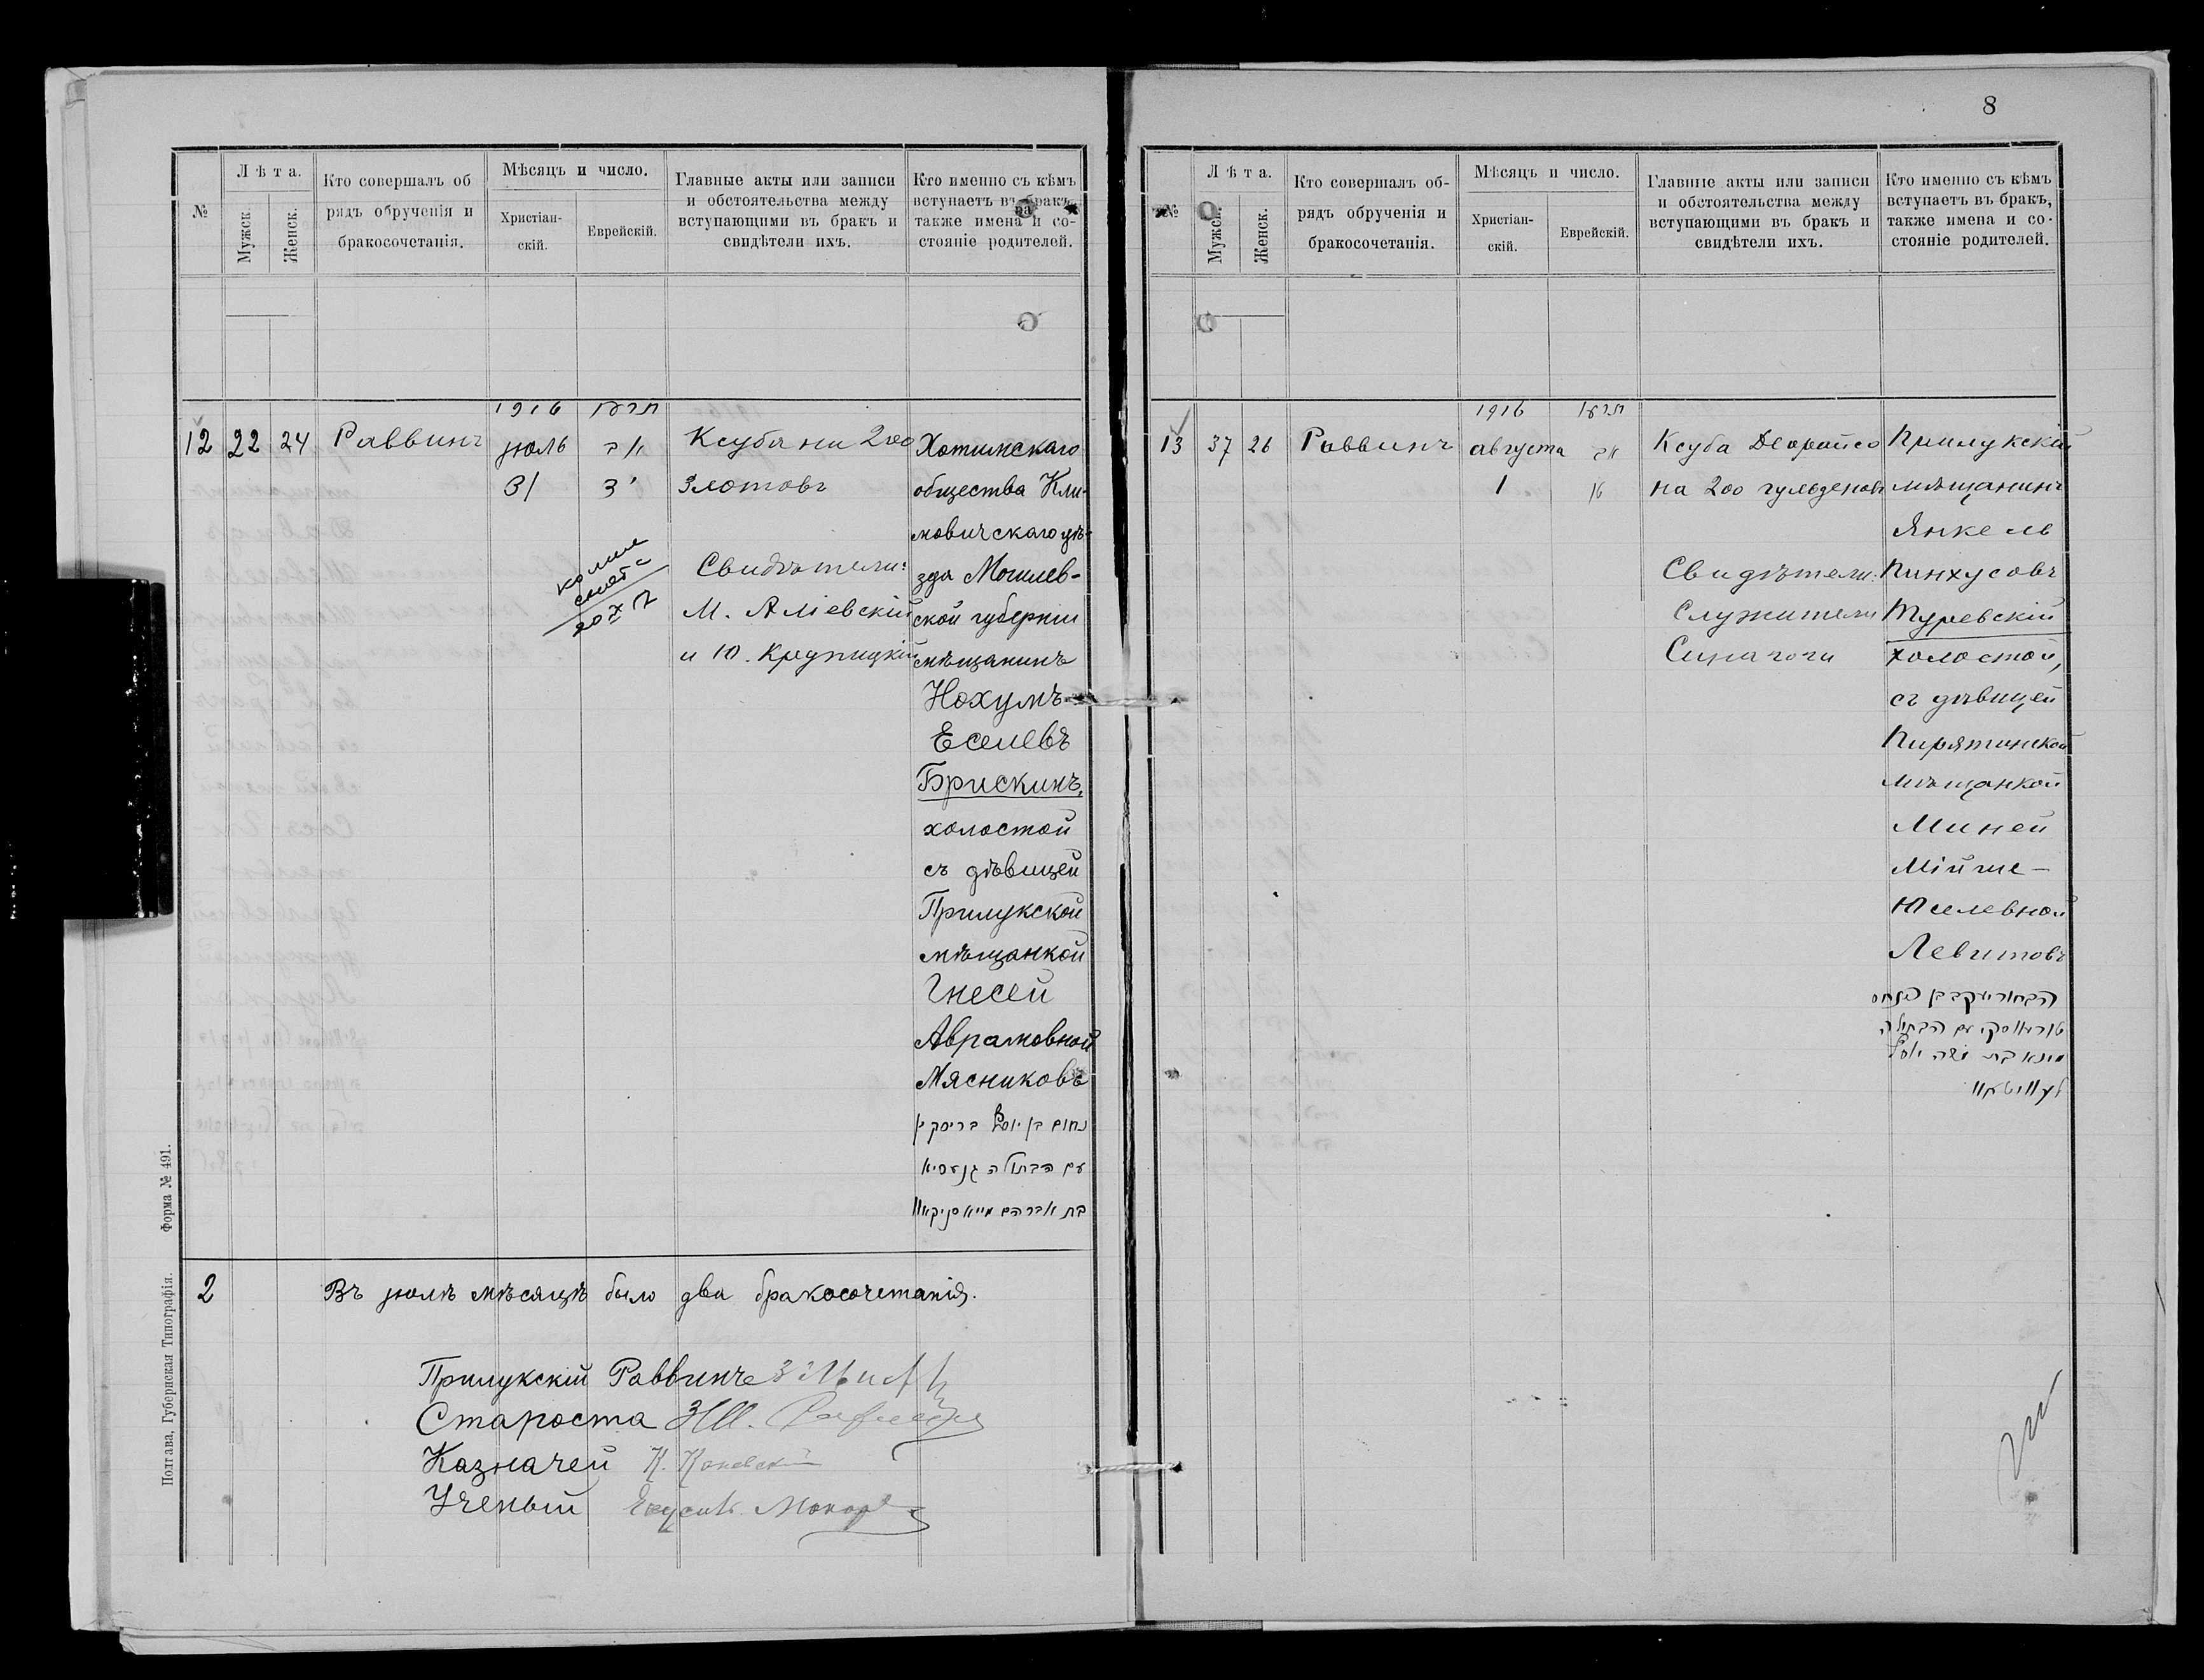 8
№
Лѣта.
Мужск.
Женск.
Кто совершалъ об
рядъ обрученія и
бракосочетанія.
Мѣсяцъ и число.
Христіан-
скій.
Еврейскій.
Главные акты или записи
и обстоятельства между
вступающими въ бракъ и
свидѣтели ихъ.
Кто именно съ кѣмъ
вступаетъ въ бракъ,
также имена и со-
стояніе родителей.
12
22
24
Раввинъ
1916
юль
31
תרעו
אב
ב'
копия
20 X
Ксуба на 200
Злотовъ
Свидѣтели:
М. Аліевскій
и Ю. Крупицкій
Хотимскаго
общества Кли-
мовичскаго уѣ-
зда Могилев-
ской губерніи
мѣщанинъ
Нохумъ
Еселевъ
Брискинъ,
холостой
съ дѣвицей
Прилукской
мѣщанкой
Гнесей
Аврамовной
Мясниковъ
נחום בן יוסף בריסקין
עם הבתולה גנעסיא
בת אברהם מיאסניקאוו
2
Въ юлѣ мѣсяцѣ было два бракосочетанія.
Прилукскій Раввинъ
Староста
Казначей К. Каневскій
Ученый
Полтава, Губернская Типографія. Форма № 491.
№
Лѣта.
Мужск.
Женск.
Кто совершалъ об-
рядъ обрученія и
бракосочетанія.
Мѣсяцъ и число.
Христіан-
скій.
Еврейскій.
Главные акты или записи
и обстоятельства между
вступающими въ бракъ и
свидѣтели ихъ.
Кто именно съ кѣмъ
вступаетъ въ бракъ,
также имена и со-
стояніе родителей.
13
37
26
Раввинъ
1916
августа
1
תרעו
אב
Ксуба Деорайсо
на 200 гульденовъ
Свидѣтели:
Служители
Синагоги
Прилукскій
мѣщанинъ
Янкель
Пинхусовъ
Туревскій
холостой,
съ дѣвицей
Пирятинской
мѣщанкой
Миней
Мійше-
Юселевной
Левитовъ
הבחור יעקב בן פנחס
טוריאווסקי עם הבתולה
מינא בת משה יוסף
לעוויטאוו